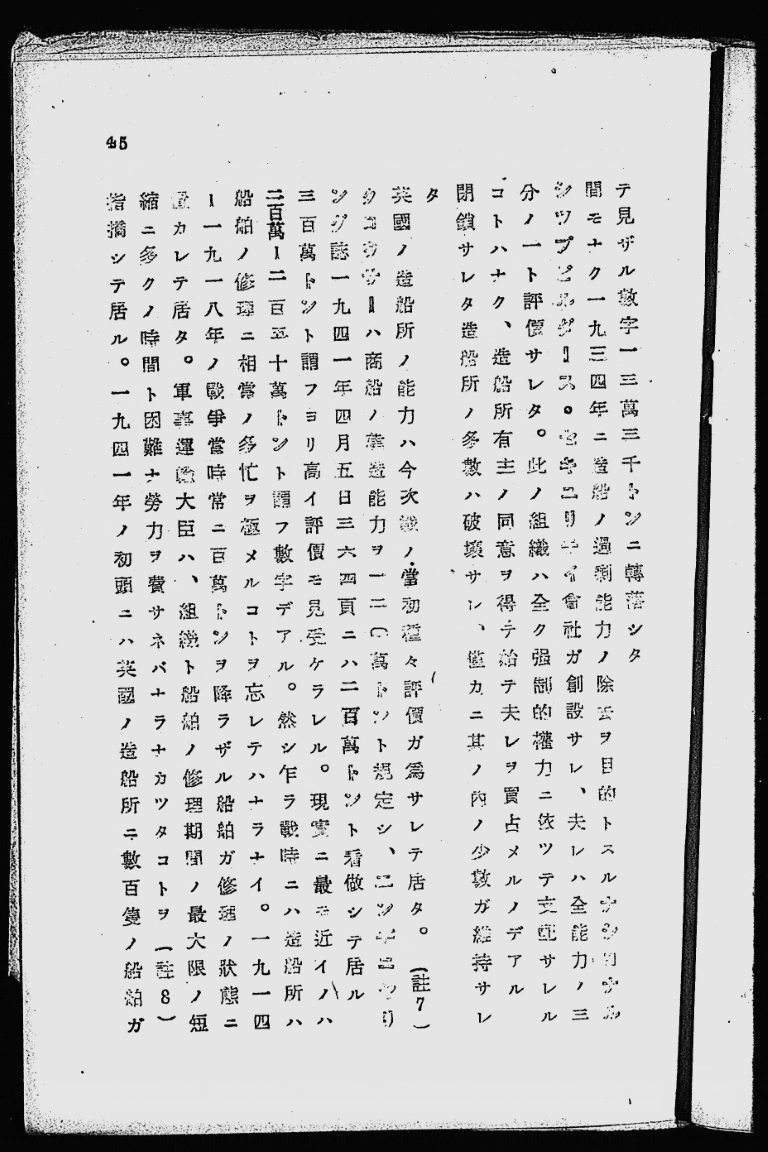 45
テ見ザル數字一三萬三千トンニ轉落シタ
間モナク一九三四年ニ造船ノ過剰能力ノ除去ヲ目的トスルナシヨナル
シツプビルダース。セキユリテイ會社ガ創設サレ、夫レハ全能力ノ三
分ノ一ト評價サレタ。此ノ組織ハ全ク强制的權力ニ依ツテ支配サレル
コトハナク、造船所有主ノ同意ヲ得テ始テ夫レヲ買占メルノデアル
閉鎖サレタ造船所ノ多數ハ破壞サレ、僅カニ其ノ內ノ少數ガ維持サレ
タ
英國ノ造船所ノ能力ハ今次戰ノ當初種々評價ガ爲サレテ居タ。(註7)
ハ商船ノ建造能力ヲ一二〇萬トント規定シ、エンヂニヤリ
ング誌一九四一年四月五日三六四頁ニハ二百萬トント看做シテ居ル
三百萬トント謂フヨリ高イ評價モ見受ケラレル。現實ニ最モ近イノハ
二百萬ー二百五十萬トント謂フ數字デアル。然シ乍ラ戰時ニハ造船所ハ
船舶ノ修理ニ相當ノ多忙ヲ極メルコトヲ忘レテハナラナイ。一九一四
ー一九一八年ノ戰爭當時常ニ百萬トンヲ降ラザル船舶ガ修理ノ狀態ニ
置カレテ居タ。軍事運輸大臣ハ、組織ト船舶ノ修理期間ノ最大限ノ短
縮ニ多クノ時間ト困難ナ勞力ヲ費サネバナラナカツタコトヲ(註8)
指摘シテ居ル。一九四一年ノ初頭ニハ英國ノ造船所ニ數百隻ノ船舶ガ